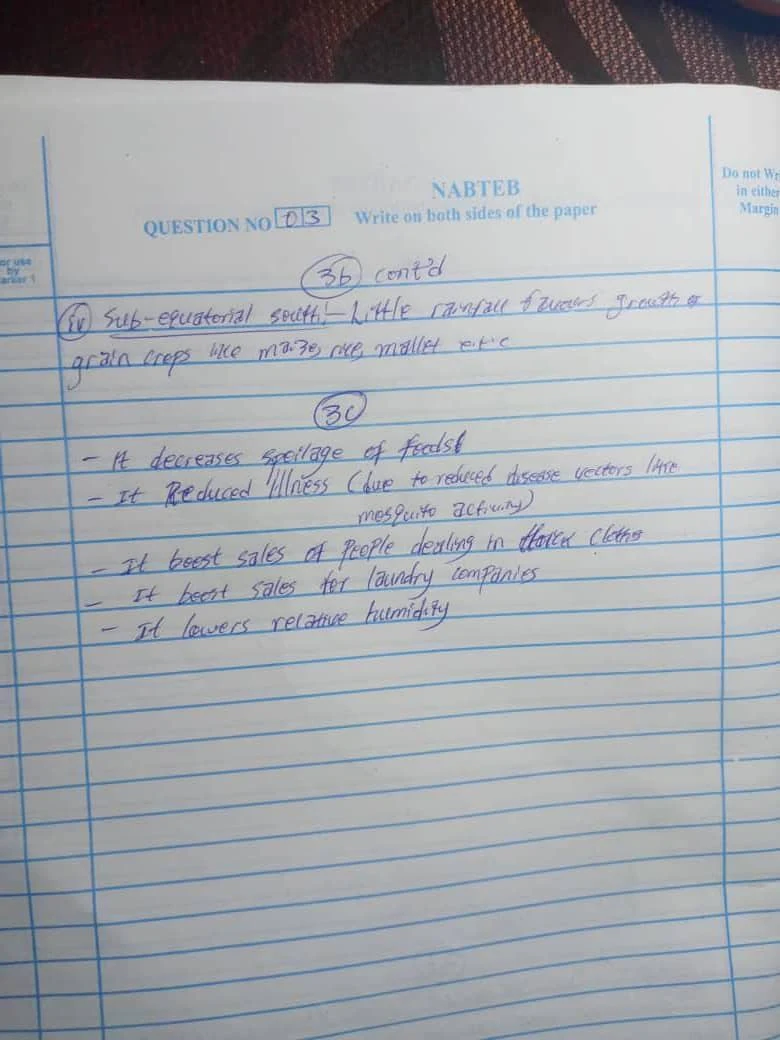 NABTEB
Do not Wr
in either
Margin
QUESTION NO 03 Write on both sides of the paper
or use
by
arker 1
3b cont'd
iv Sub-equatorial south:- Little rainfall favours growth of
grain crops like maize, rice, mallet e.t.c
3c
- It decreases spoilage of foods
- It Reduced illness (due to reduced disease vectors like
mosquito activity)
- It boost sales of People dealing in thick cloths
- It boost sales for laundry companies
- It lowers relative humidity